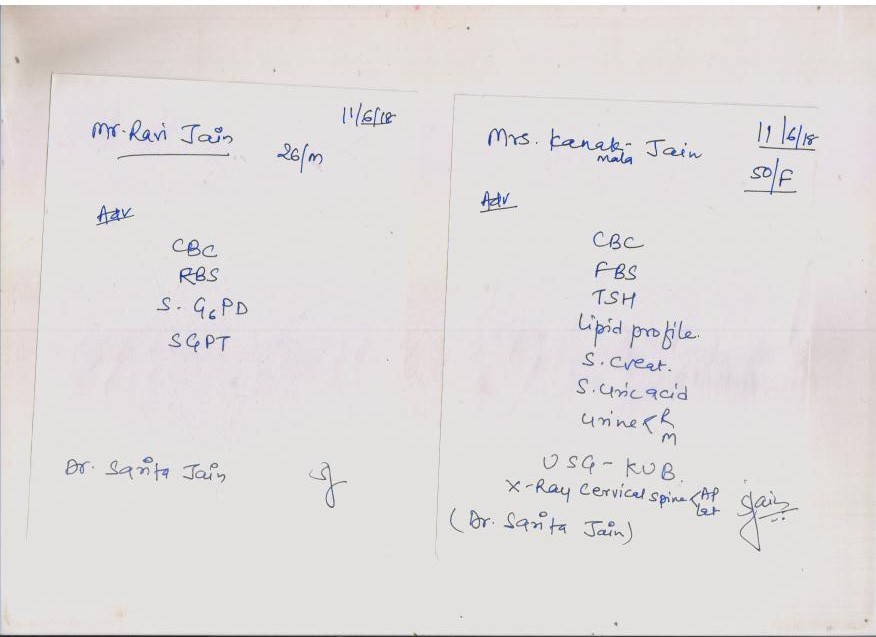 11/6/18
Mr. Ravi Jain
26/M
Adv
CBC
RBS
S. G6PD
SGPT
Dr. Sarita Jain
SJ
11/6/18
Mrs. Kanak- Jain
mala
50/F
Adv
CBC
FBS
TSH
Lipid profile.
S. Creat.
S. Uric acid
Urine < R
M
USG - KUB.
X-Ray Cervical spine < AP
Lat
SJain
(Dr. Sarita Jain)